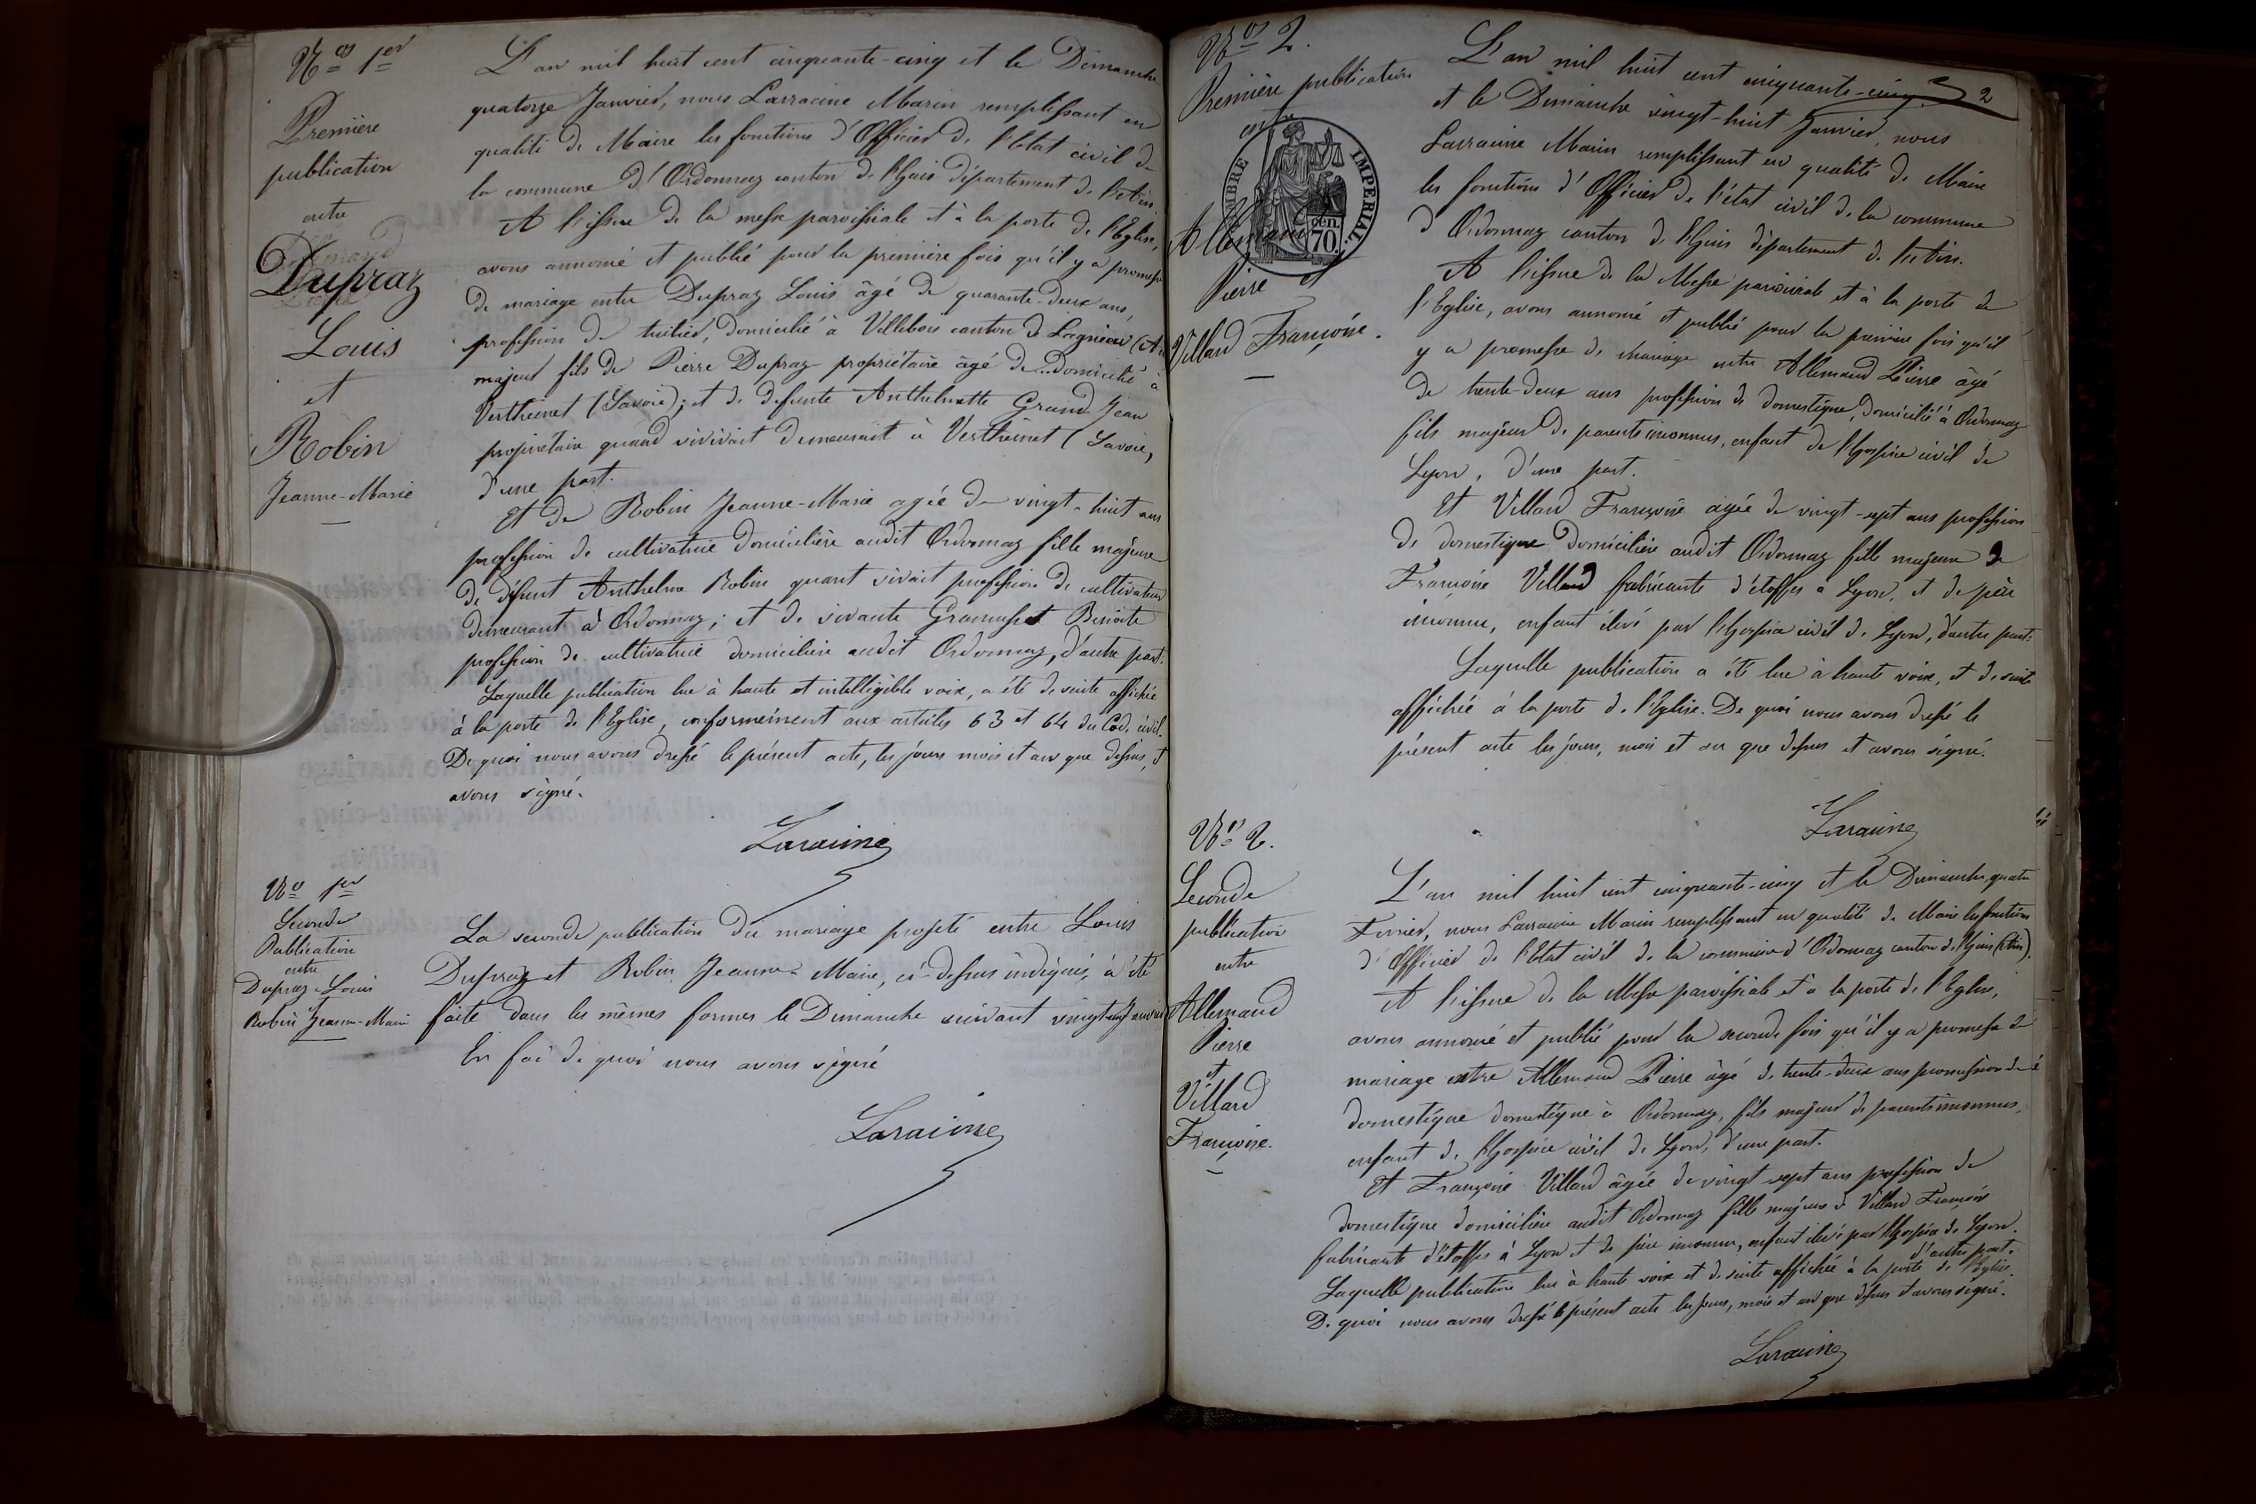 No 1er
Première
publication
entre
Dupraz
Louis
et
Robin
Jeanne-Marie
L'an mil huit cent cinquante-cinq et le Dimanche
quatorze Janvier, nous Larracine Marin remplissant en
qualité de Maire les fonctions d'Officier de l'Etat civil de
la commune d'Ordonnaz canton de lhuis département de l'Ain.
A l'issue de la messe paroissiale et à la porte de l'Eglise,
avons annoncé et publié pour la première fois qu'il y a promesse
de mariage entre Dupraz Louis âgé de quarante-deux ans,
profession de tuilier, domicilié à Villebois canton de Lagnieu (Ain
majeur fils de Pierre Dupraz propriétaire âgé de .. domicilié à
(Savoie); et de defunte Anthelmette Grand Jean
propriétaire quand vivivait demeurait à (Savoie,
d'une part.
Et de Robin Jeanne-Marie agée de vingt-huit ans
profession de cultivatrice domicilière audit Ordonnaz fille majeure
de défunt Anthelme Robin quant vivait profession de cultivateur
demeurant à Ordonnaz; et de vivante Gramusset Benoite
profession de cultivatrice domicilière audit Ordonnaz, d'autre part.
Laquelle publication lue à haute et intelligible voix, a été de suite affichée
à la porte de l'Eglise, conformément aux articles 63 et 64 du Code civil.
De quoi nous avons dressé le présent acte, les jours mois et an que dessus, et
avons signé.
Laracine
No 1er
Seconde
Publication
entre
Dupraz Louis
et
Robin Jeanne-Marie
La seconde publication du mariage projeté entre Louis
Dupraz et Robin Jeanne-Marie, ci-dessus indiqués, à été
faite dans les mêmes formes le Dimanche suivant vingt-un Janvier
En foi de quoi nous avons signé
Laracine
No 2.
Première publication
entre
TIMBRE IMPERIAL.
cen. 70
Allemand
Pierre et
Villard Françoise.
2
L'an mil huit cent cinquante-cinq
et le Dimanche vingt-huit Janvier, nous
Larracine Marin remplissant en qualité de Maire
les fonctions d'Officier de l'état civil de la commune
d'Ordonnaz canton de lhuis département de l'Ain.
A l'issue de la Messe paroissiale et à la porte de
l'Eglise, avons annoncé et publié pour la première fois qu'il
y a promesse de mariage entre Allemand Pierre âgé
de trente-deux ans profession de domestique, domicilié à Ordonnaz
fils majeur de parents inconnus, enfant de l'hospice civil de
Lyon, d'une part.
Et Villard Françoise agée de vingt-sept ans profession
de domestique domicilière audit Ordonnaz fille majeure de
Françoise Villard fabricante d'étoffes à Lyon, et de père
inconnu, enfant élevé par l'hospice civil de Lyon, d'autre part.
Laquelle publication a été lue à haute voix, et de suite
affichée à la porte de l'Eglise. De quoi nous avons dressé le
présent acte les jours, mois et an que dessus et avons signé.
Laracine
No 2.
Seconde
publication
entre
Allemand
Pierre
et
Villard
Françoise.
L'an mil huit cent cinquante-cinq et le Dimanche, quatre
Février, nous Larracine Marin remplissant en qualité de Maire les fonctions
d'Officier de l'Etat civil de la commune d'Ordonnaz canton de lhuis (Ain).
A l'issue de la Messe paroissiale et à la porte de l'Eglise,
avons annoncé et publié pour la seconde fois qu'il y a promesse de
mariage entre Allemand Pierre âgé de trente-deux ans profession de
domestique domestique à Ordonnaz, fils majeur de parents inconnus,
enfant de l'hospice civil de Lyon, d'une part.
Et Françoise Villard âgée de vingt-sept ans profession de
domestique domicilière audit Ordonnaz fille majeure de Villard Françoise
fabricante d'étoffes à Lyon et de père inconnu, enfant élevé par l'hospice de Lyon.
d'autre part.
Laquelle publication lue à haute voix et de suite affichée à la porte de l'Eglise.
De quoi nous avons dressé le présent acte les jours, mois et an que dessus et avons signé.
Laracine